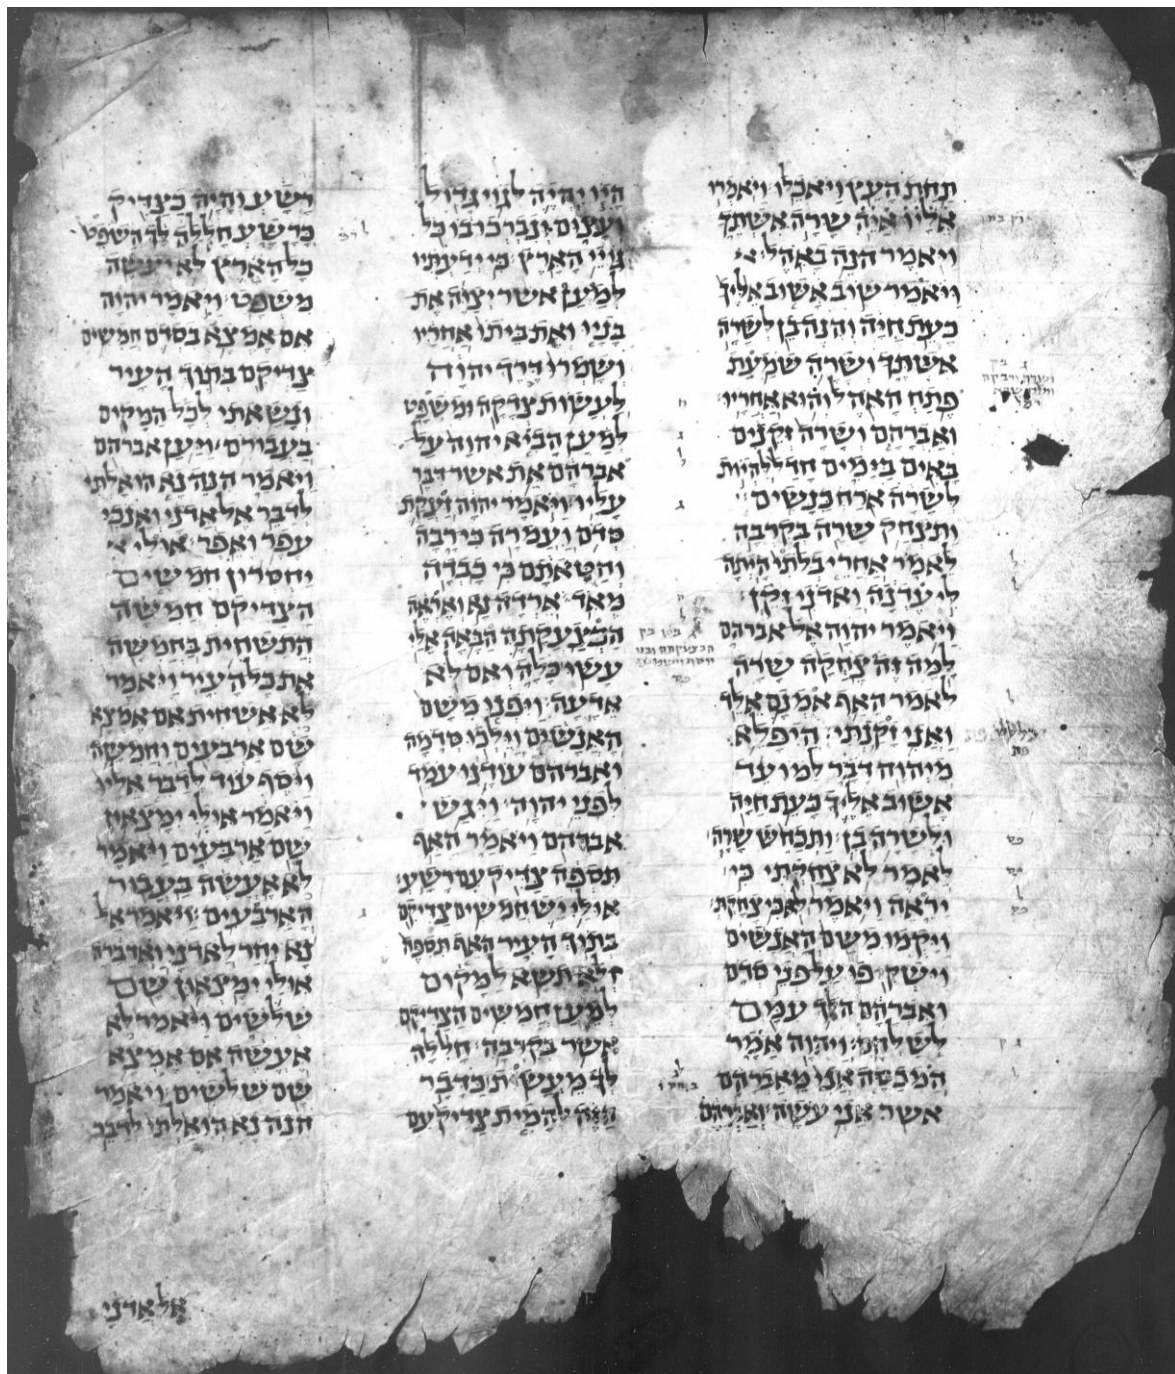 תחת העץ ויאכלו ויאמרו
אליו איה שרה אשתך
ויאמר הנה באהל
ויאמר שוב אשוב אליך
כעת חיה והנה בן לשרה
אשתך ושרה שמעת
פתח האהל והוא אחריו
ואברהם ושרה זקנים
באים בימים חדל להיות
לשרה ארח כנשים
ותצחק שרה בקרבה
לאמר אחרי בלתי היתה
לי עדנה ואדני זקן
ויאמר יהוה אל אברהם
למה זה צחקה שרה
לאמר האף אמנם אלד
ואני זקנתי היפלא
מיהוה דבר למועד
אשוב אליך כעת חיה
ולשרה בן ותכחש שרה
לאמר לא צחקתי כי
יראה ויאמר לא כי צחקת
ויקמו משם האנשים
וישקפו על פני סדם
ואברהם הלך עמם
לשלחם ויהוה אמר
המכסה אני מאברהם
אשר אני עשה ואברהם
היו יהיה לגוי גדול
ועצום ונברכו בו כל
גויי הארץ כי ידעתיו
למען אשר יצוה את
בניו ואת ביתו אחריו
ושמרו דרך יהוה
לעשות צדקה ומשפט
למען הביא יהוה על
אברהם את אשר דבר
עליו ויאמר יהוה זעקת
סדם ועמרה כי רבה
וחטאתם כי כבדה
מאד ארדה נא ואראה
הכצעקתה הבאה אלי
עשו כלה ואם לא
אדעה ויפנו משם
האנשים וילכו סדמה
ואברהם עודנו עמד
לפני יהוה ויגש
אברהם ויאמר האף
תספה צדיק עם רשע
אולי יש חמשים צדיקם
בתוך העיר האף תספה
ולא תשא למקום
למען חמשים הצדיקם
אשר בקרבה חללה
לך מעשת כדבר
הזה להמית צדיק עם
רשע והיה כצדיק
כרשע חללה לך השפט
כל הארץ לא יעשה
משפט ויאמר יהוה
אם אמצא בסדם חמשים
צדיקם בתוך העיר
ונשאתי לכל המקום
בעבורם ויען אברהם
ויאמר הנה נא הואלתי
לדבר אל אדני ואנכי
עפר ואפר אולי
יחסרון חמשים
הצדיקם חמשה
התשחית בחמשה
את כל העיר ויאמר
לא אשחית אם אמצא
שם ארבעים וחמשה
ויסף עוד לדבר אליו
ויאמר אולי ימצאון
שם ארבעים ויאמר
לא אעשה בעבור
הארבעים ויאמר אל
נא יחר לאדני ואדברה
אולי ימצאון שם
שלשים ויאמר לא
אעשה אם אמצא
שם שלשים ויאמר
הנה נא הואלתי לדבר
אל אדני